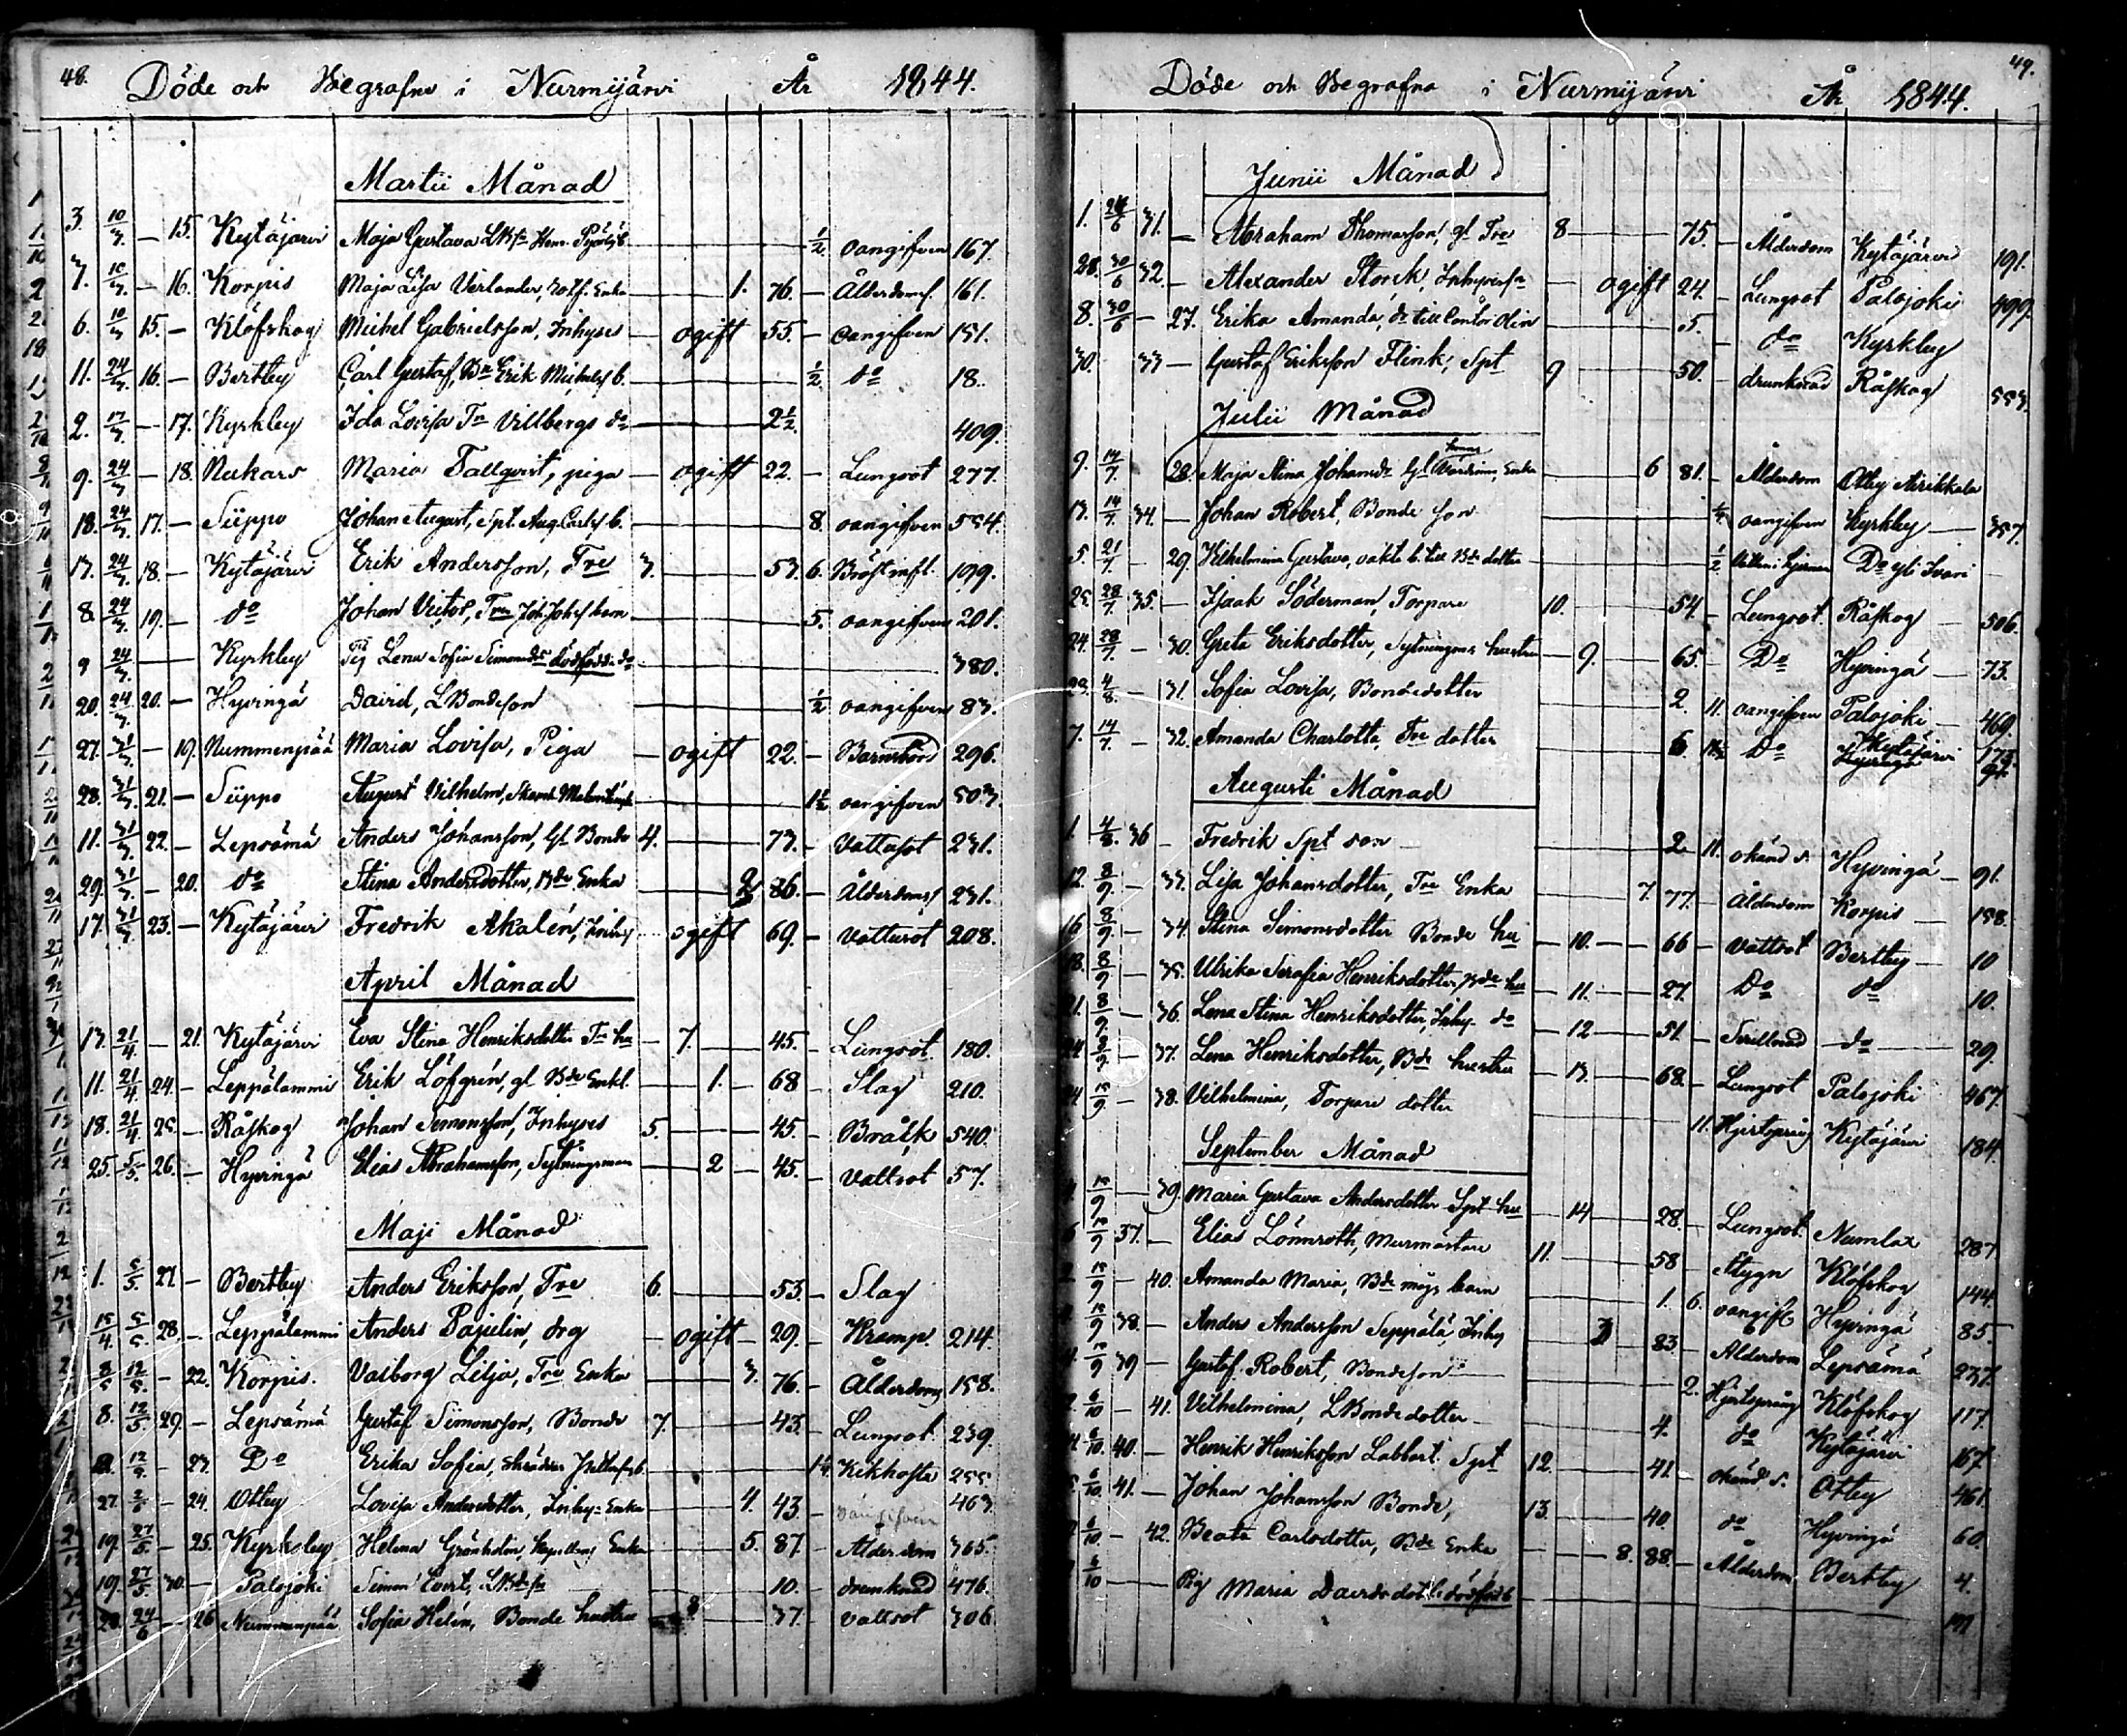 48. Döde och Begrafne i Nurmijärvi År 1844.
Martii Månad
3. 10/3. — 15. Kytäjärvi Maja Gustava ½ oangifven 167.
7. 10/3. — 16. Korpis Maja Lisa Verlander, Enka 1. 76. — Ålderdomsf. 161.
6. 10/3 15. — Klöfskog Michel Gabrielsson, Inhyses — ogift 55. — oangifven 151.
11. 24/3. 16. — Bertby Carl Gustaf, Erik Michels b. ½. do 18.
2. 17/3. — 17. Kyrkby Ida Lovisa Tr Villbergs do 2½. 409.
9. 24/3 — 18. Nukars Maria Tallqvist, piga — ogift 22. — Lungsot 277.
18. 24/3. 17. — Siippo Johan August, Spt. Aug. Carlss b. 8. oangifven 554.
13. 24/3. 18. — Kytäjärvi Erik Andersson, Tre 3. 53. 6. Bröstinfl. 199.
8. 24/3. 19. — do Johan Victor, Tre Joh. Johss barn 5. oangifven 201.
9 24/3. Kyrkby Pig Lena Sofia Simonsdr dödfödda do 380.
20. 24/3. 20. — Hyvingä David, LBondeson ½ oangifven 83.
27. 31/3. — 19. Nummenpää Maria Lovisa, Piga — ogift 22. — Barnsbörd 296.
28. 31/3. 21. — Siippo August Vilhelm, 1½ oangifven 503.
11. 31/3. 22. — Lepsämä Anders Johansson, Gl Bonde 4. 73. — Vattusot 231.
29. 31/3. — 20. do Stina Andersdotter, Bde Enka 2 86. — Ålderdomsf 231.
17. 31/3. 23. — Kytäjärvi Fredrik Akalén, Inhy ogift 69. — Vattusot 208.
April Månad
13. 21/4. — 21. Kytäjärvi Eva Stina Henriksdotter Tr hu — 7. 45. — Lungsot. 180.
11. 21/4. 24. — Leppälammi Erik Löfgrén, gl Bde Enkl. 1. — 68 — Slag 210.
18. 21/4 25. — Råskog Johan Simonsson, Inhyses 5. 45. — Bråck 540.
25. 5/5. 26. — Hyvingä Elias Abrahamsson, Sytningsman 2 — 45. — Vattsot 57.
Maji Månad
1. 5/5. 27. — Bertby Anders Eriksson, Tre 6. 53. — Slag
15/4 5/5. 28. — Leppälammi Anders Pajulin, drg — ogift — 29. — Kramp. 214.
8/5 12/5. — 22. Korpis. Valborg Lilja, Tre Enka 3. 76. — Ålderdoms 158.
8. 12/5. 29. — Lepsämä Gustaf Simonsson, Bonde 7. 43. — Lungsot. 239.
12/5. — 23. Do Erika Sofia, Kikhosta 255.
27. 2/6 — 24. Otby Lovisa Andersdotter, Inhy= Enka 4. 43. — oangifven 463.
19. 27/5. — 25. Kyrkoby Helena Grönholm, Kapellans Enka 5. 87. — Ålderdom 365.
19. 27/5. 30. — Palojoki Simon Evert, LBdesn 10. — drunknad 476.
28. 24/6 — 26 Nummenpää Sofia Helén, Bonde hustru 8 37. — vattsot 306
49.
Döde och Begrafna i Nurmijärvi År 1844.
Junii Månad
1. 24/6 31. — Abraham Thomasson, gl Tre 8 75. — Ålderdom Kytäjärvi 191.
28. 30/6 32. — Alexander Storck, Inhysesn — ogift 24. — Lungsot Palojoki 499.
8. 30/6 — 27. Erika Amanda, dr till Cantor Olin 5. — do Kyrkby
30. 33 — Gustaf Eriksson Flink, Spt 9 50. — drunknad Råskog 553.
Julii Månad
9. 14/7. 28. Maja Stina Johansdr Gl Enka 6 81. — Ålderdom Otby Airikkala
13. 14/7. 34. — Johan Robert, Bonde son oangifven Kyrkby — 357.
5. 21/7. — 29. Vilhelmina Gustava, oäkta b. till Bde dotter ½ Do yli Ivari
25. 28/7. 35. — Isaak Söderman, Torpare 10. 54. — Lungsot. Råskog — 506.
24. 28/7. — 30. Greta Eriksdotter, Sytningsms hustru — 9. 65. — Do Hyvingä — 73.
29. 4/8. — 31. Sofia Lovisa, Bondedotter 2. 11. oangifven Palojoki — 469.
7. 14/7. — 32. Amanda Charlotta, Tre dotter 6. Do Kytäjärvi 173.
Augusti Månad
1. 4/8. 36 — Fredrik Spt son — 2 11. okänd s. Hyvingä — 91.
12. 8/9. — 33. Lisa Johansdotter, Tre Enka 7. 77. — Ålderdom Korpis — 158.
16 8/9 — 34. Stina Simonsdotter Bonde hu — 10. — 66 — vattsot Bertby — 10
18. 8/9 — 35. Ulrika Serafia Henriksdotter, Bde hu — 11. — 27. Do do 10.
21. 8/9 — 36. Lena Stina Henriksdotter, Inhy. do — 12 — 51. — do — 29.
24 8/9. — 37. Lena Henriksdotter, Bde hustru — 13. — 68. — Lungsot Palojoki 467.
15/9. — 38. Vilhelmina, Torpare dotter 11. Hjertspräng Kytäjärvi 184.
September Månad
15/9 — 39. Maria Gustava Andersdotter Spt hu — 14 28. — Lungsot. Numlax 287
15/9 37. — Elias Lönnroth, Murmästare 11. 58 — Stygn Klöfskog 144.
15/9 — 40. Amanda Maria, Bde mågs barn 1. 6. oangifv Hyvingä 85.
15/9 38. — Anders Andersson Seppälä, Inhy 3 83. — Ålderdom Lepsämä 237.
15/9 39 — Gustaf Robert, Bondeson 2. Hjertspräng Klöfskog 117.
6/10 — 41. Vilhelmina, LBonde dotter — 4. do Kytäjärvi 167.
6/10. 40. — Henrik Henriksson Labbart Spt 12. 41. okänd s. Otby 461.
6/10. 41. — Johan Johansson Bonde, 13. 40. do Hyvingä 60.
6/10 — 42. Beata Carlsdotter, Bde Enka — 8. 88. — Ålderdom Bertby 4.
6/10 Pig Maria Davidsdot